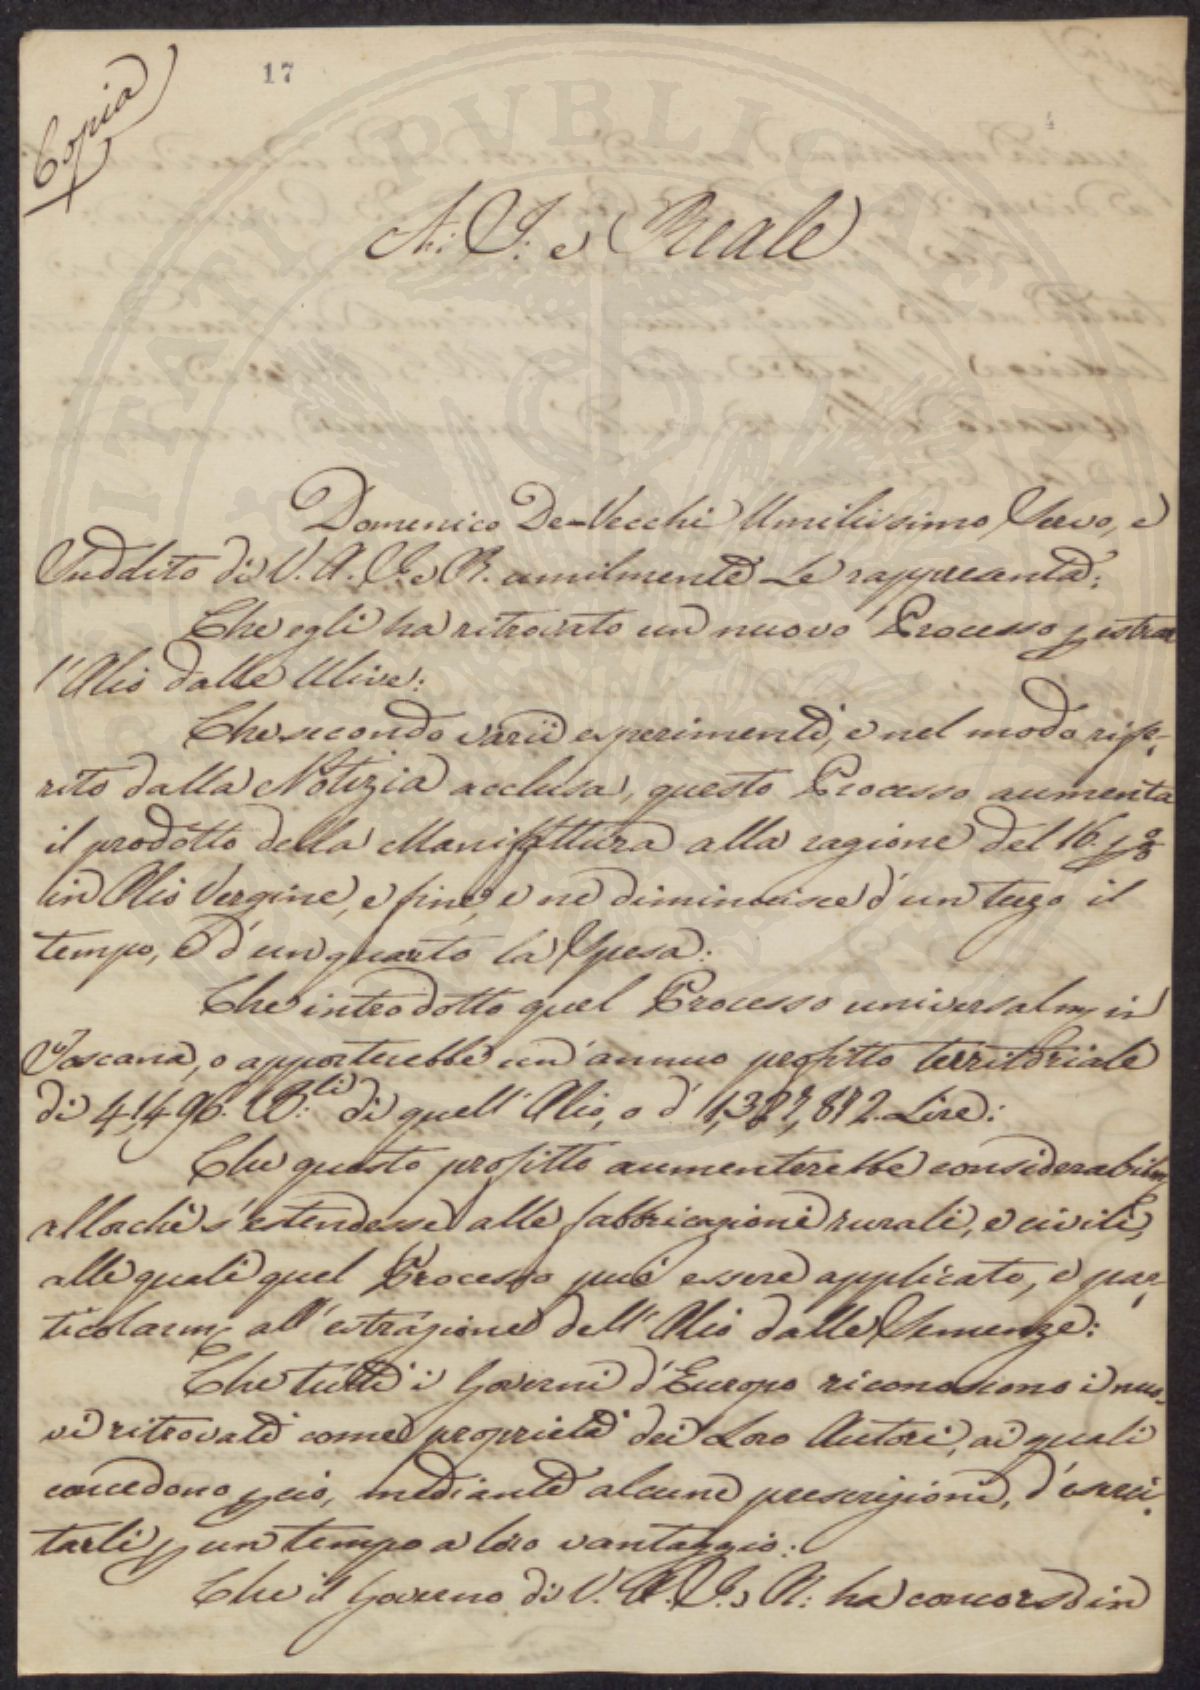 Copia
17
4
A: I: e Reale
Domenico De-Vecchi Umilissimo Servo, e
Suddito di V. A. I. e R. umilmente Le rappresenta:
Che egli ha ritrovato un nuovo Processo p estrar
l'Olio dalle Ulive:
Che secondo varii esperimenti, e nel modo rife-
rito dalla Notizia acclusa, questo Processo aumenta
il prodotto della Manifattura alla ragione del 16. p%
in Olio Vergine, e fine, e ne diminuisce d'un terzo il
tempo, e d'un quarto la Spesa:
Che introdotto quel Processo universalm in
Toscana, o apporterebbe un'annuo profitto territoriale
di 41496. B:li di quell'Olio, o d' 1,387,872. Lire:
Che questo profitto aumenterebbe considerabilm
allorchè s'estendesse alle fabbricazioni rurali, e civili,
alle quali quel Processo può essere applicato, e par-
ticolarm all'estrazione dell'Olio dalle Semenze:
Che tutti i Governi d'Europa riconoscono i nuo-
vi ritrovati come proprietà dei Loro Autori, ai quali
concedono p ciò, mediante alcune prescrizioni, d'eserci-
tarli p un tempo a loro vantaggio:
Che il Governo di V. A. I. e R: ha concorso in